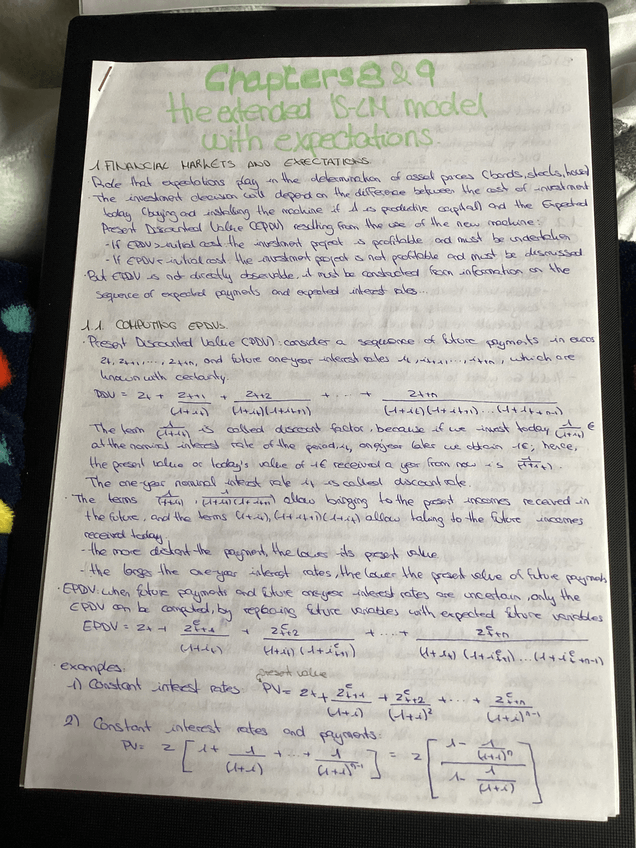 Chapters 8 & 9
the extended IS-LM model
with expectations.
1. FINANCIAL MARKETS AND EXPECTATIONS.
Role that expectations play in the determination of asset prices (bonds, stocks, house)
The investment decision will depend on the difference between the cost of investment
today (buying and installing the machine if I is productive capital) and the Expected
Present Discounted Value (EPDV) resulting from the use of the new machine:
- If EPDV > initial cost the investment project is profitable and must be undertaken
- If EPDV < initial cost the investment project is not profitable and must be discussed
· But EPDV is not directly observable, it must be constructed from information on the
sequence of expected payments and expected interest rates...
1.1. COMPUTING EPDVs.
· Present Discounted Value (PDV): consider a sequence of future payments in euros
zt, zt+1, ..., zt+n, and future one-year interest rates it, it+1, ..., it+n, which are
known with certainty.
PDV = zt + zt+1/(1+it) + zt+2/(1+it)(1+it+1) + ... + zt+n/(1+it)(1+it+1)...(1+it+n-1)
The term 1/(1+it) is called discount factor, because if we invest today 1/(1+it) €
at the nominal interest rate of the period, it, one year later we obtain 1€; hence,
the present value or today's value of 1€ received a year from now is 1/(1+it).
The one-year nominal interest rate it is called discount rate.
· The terms 1/(1+it), 1/(1+it)(1+it+1) allow bringing to the present incomes received in
the future, and the terms (1+it), (1+it+1)(1+it) allow taking to the future incomes
received today
- the more distant the payment, the lower its present value.
- the larger the one-year interest rates, the lower the present value of future payments
· EPDV: when future payments and future one-year interest rates are uncertain, only the
EPDV can be computed, by replacing future variables with expected future variables
EPDV = zt + z^e t+1/(1+it) + z^e t+2/(1+it)(1+i^e t+1) + ... + z^e t+n/(1+it)(1+i^e t+1)...(1+i^e t+n-1)
· examples:
present value
1) Constant interest rates: PV = zt + z^e t+1/(1+i) + z^e t+2/(1+i)^2 + ... + z^e t+n/(1+i)^n-1
2) Constant interest rates and payments:
PV = z [1 + 1/(1+i) + ... + 1/(1+i)^n-1] = z [(1 - 1/(1+i)^n)/(1 - 1/(1+i))]